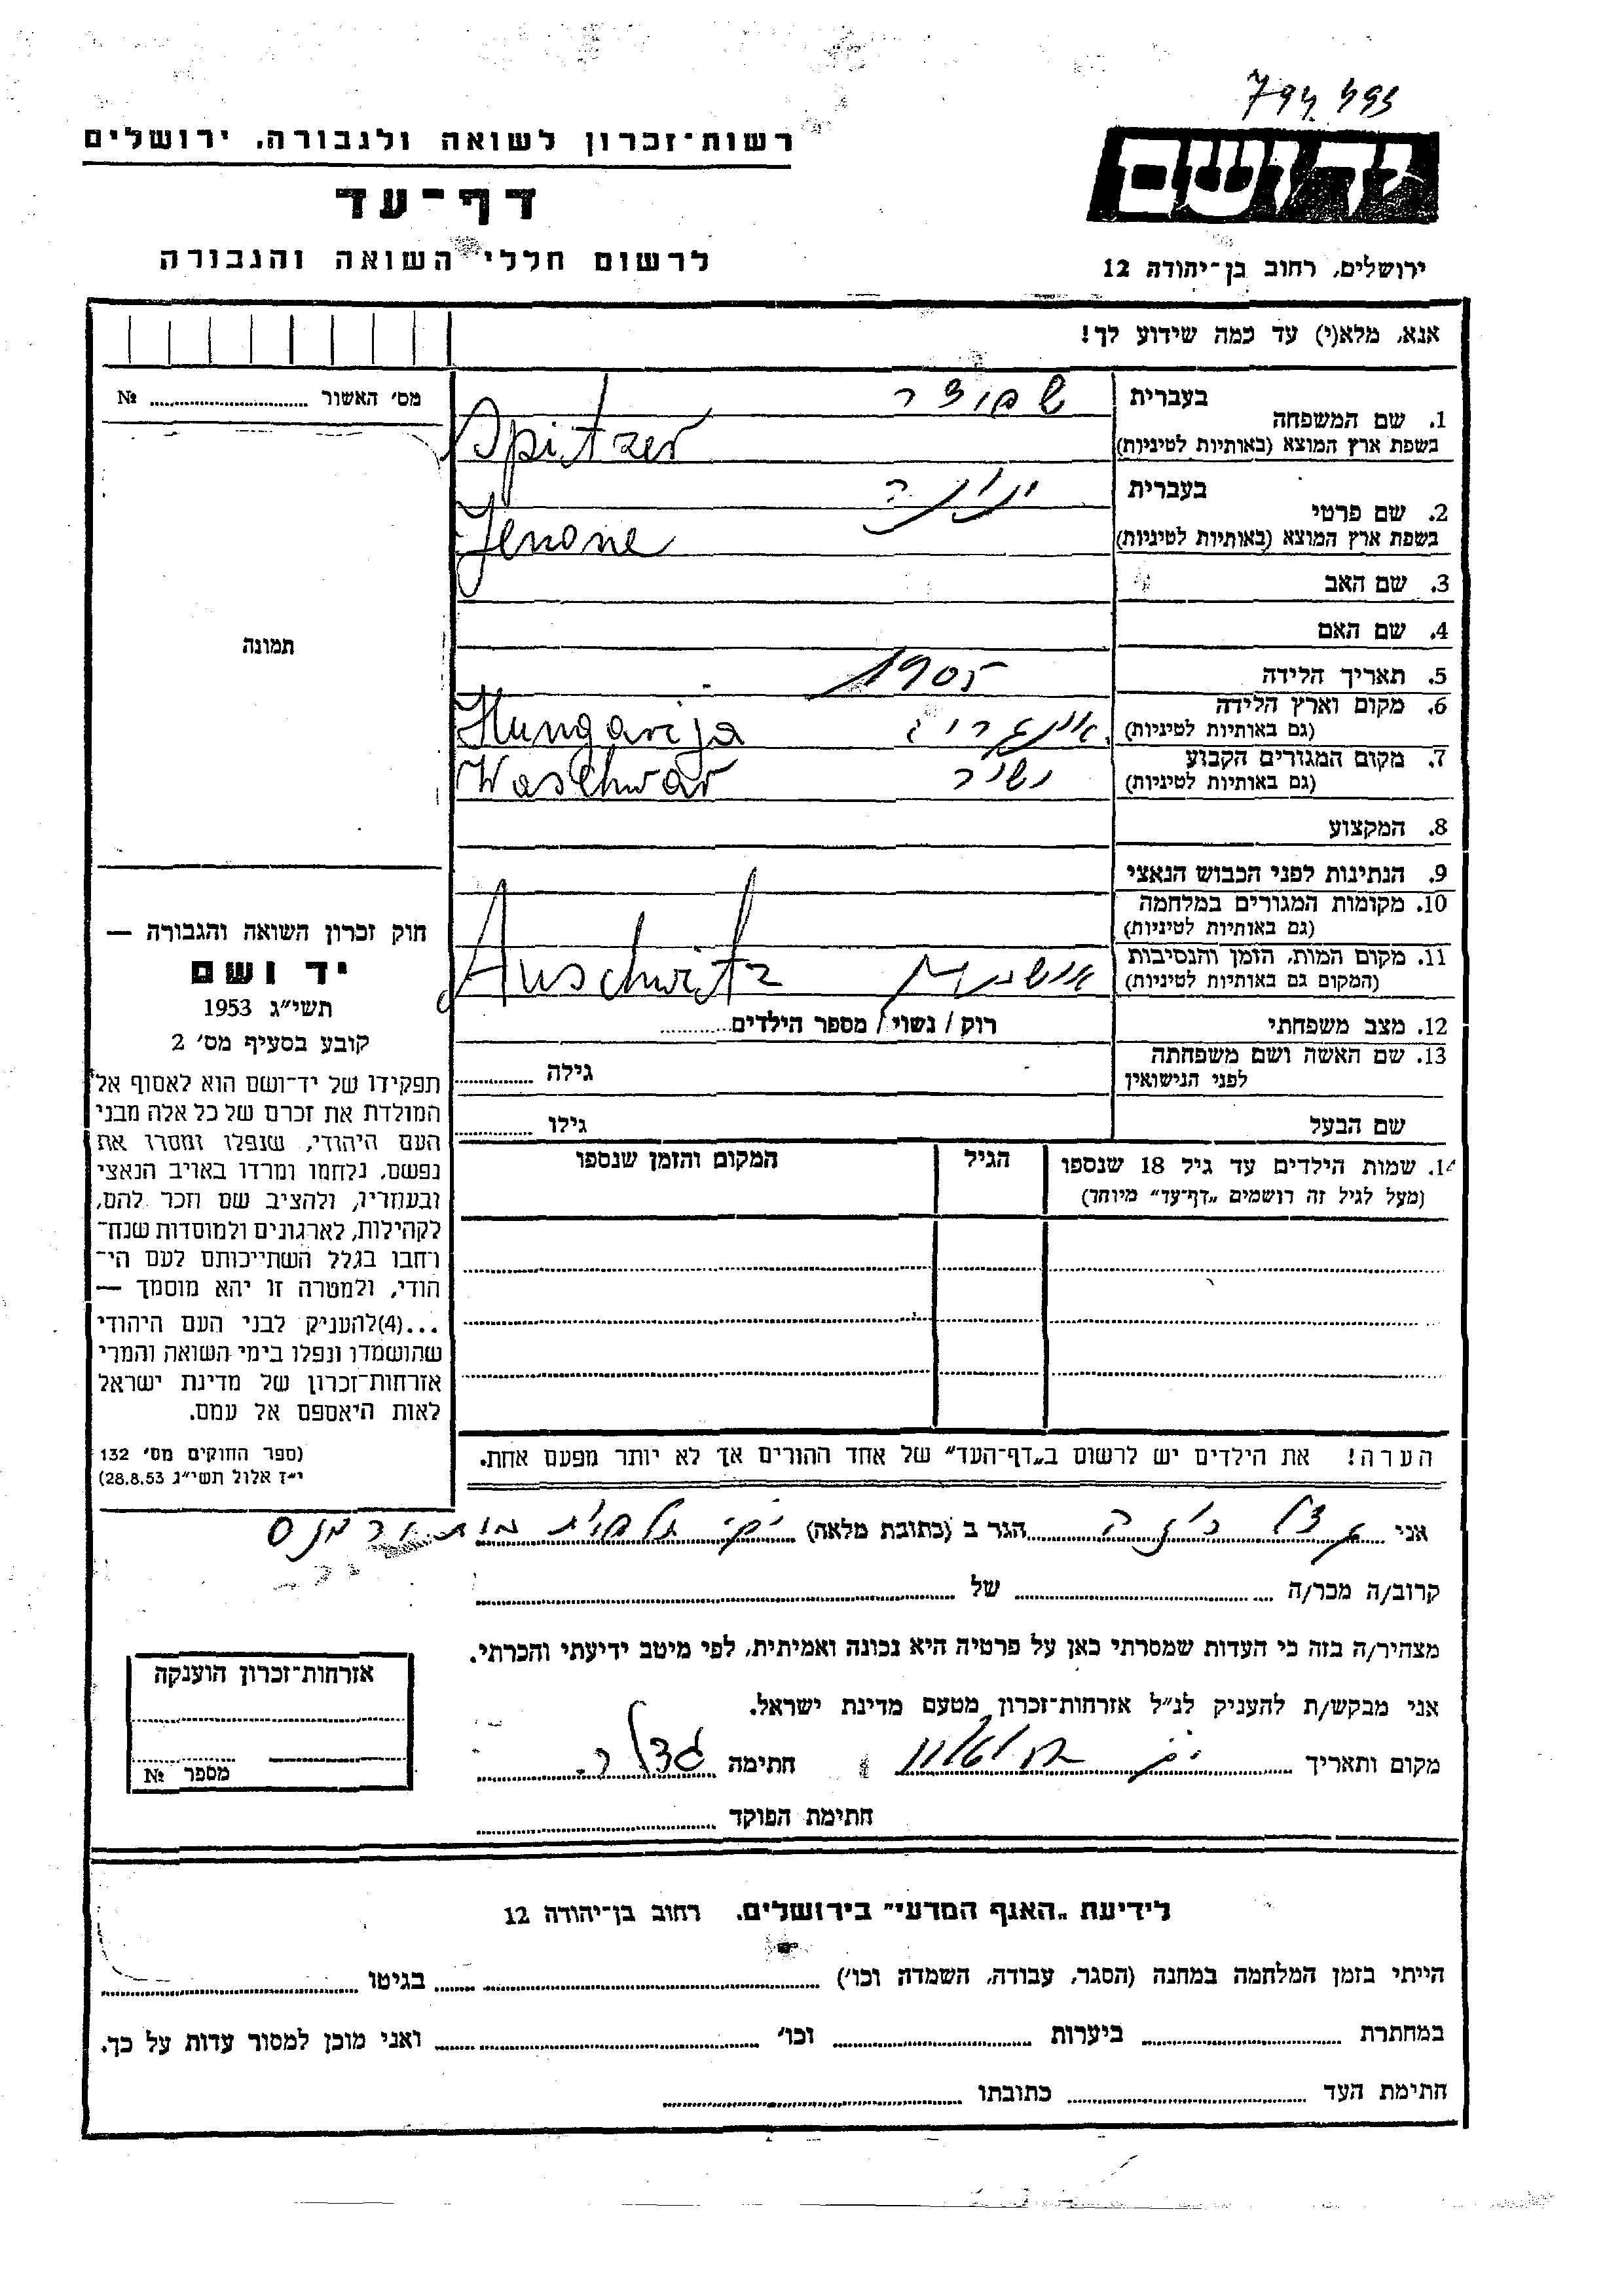 רשות־זכרון לשואה ולגבורה, ירושלים
דף־עד
לרשום חללי השואה והגבורה
יד ושם
ירושלים, רחוב בן־יהודה 12
אנא, מלא(י) עד כמה שידוע לך!
מס' האשור ........ №
תמונה
1. שם המשפחה
בעברית שפיצר
בשפת ארץ המוצא (באותיות לטיניות) Spitzer
2. שם פרטי
בעברית
בשפת ארץ המוצא (באותיות לטיניות) Jenone
3. שם האב
4. שם האם
5. תאריך הלידה 1905
6. מקום וארץ הלידה
(גם באותיות לטיניות) Hungarija
7. מקום המגורים הקבוע
(גם באותיות לטיניות) Waschwar
8. המקצוע
9. הנתינות לפני הכבוש הנאצי
10. מקומות המגורים במלחמה
(גם באותיות לטיניות)
11. מקום המות, הזמן והנסיבות
(המקום גם באותיות לטיניות) Auschwitz
12. מצב משפחתי רוק / נשוי / מספר הילדים........
13. שם האשה ושם משפחתה
לפני הנישואין גילה ........
שם הבעל גילו ........
14. שמות הילדים עד גיל 18 שנספו
(מעל לגיל זה רושמים "דף־עד" מיוחד)
הגיל
המקום והזמן שנספו
חוק זכרון השואה והגבורה —
יד ושם
תשי"ג 1953
קובע בסעיף מס' 2
תפקידו של יד־ושם הוא לאסוף אל
המולדת את זכרם של כל אלה מבני
העם היהודי, שנפלו ומסרו את
נפשם, נלחמו ומרדו באויב הנאצי
ובעוזריו, ולהציב שם וזכר להם,
לקהילות, לארגונים ולמוסדות שנח־
רחבו בגלל השתייכותם לעם הי־
הודי, ולמטרה זו יהא מוסמך —
...(4)להעניק לבני העם היהודי
שהושמדו ונפלו בימי השואה והמרי
אזרחות־זכרון של מדינת ישראל
לאות היאספם אל עמם.
(ספר החוקים מס' 132
י"ז אלול תשי"ג 28.8.53)
הערה! את הילדים יש לרשום ב"דף־העד" של אחד ההורים אך לא יותר מפעם אחת.
אני ........ הגר ב (כתובת מלאה) ........
קרוב/ה מכר/ה ........ של ........
מצהיר/ה בזה כי העדות שמסרתי כאן על פרטיה היא נכונה ואמיתית, לפי מיטב ידיעתי והכרתי.
אני מבקש/ת להעניק לנ"ל אזרחות־זכרון מטעם מדינת ישראל.
מקום ותאריך ........ חתימה ........
חתימת הפוקד ........
אזרחות־זכרון הוענקה
מספר №
לידיעת "האגף המדעי" בירושלים, רחוב בן־יהודה 12
הייתי בזמן המלחמה במחנה (הסגר, עבודה, השמדה וכו') ........ בגיטו ........
במחתרת ........ ביערות ........ וכו' ........ ואני מוכן למסור עדות על כך.
חתימת העד ........ כתובתו ........